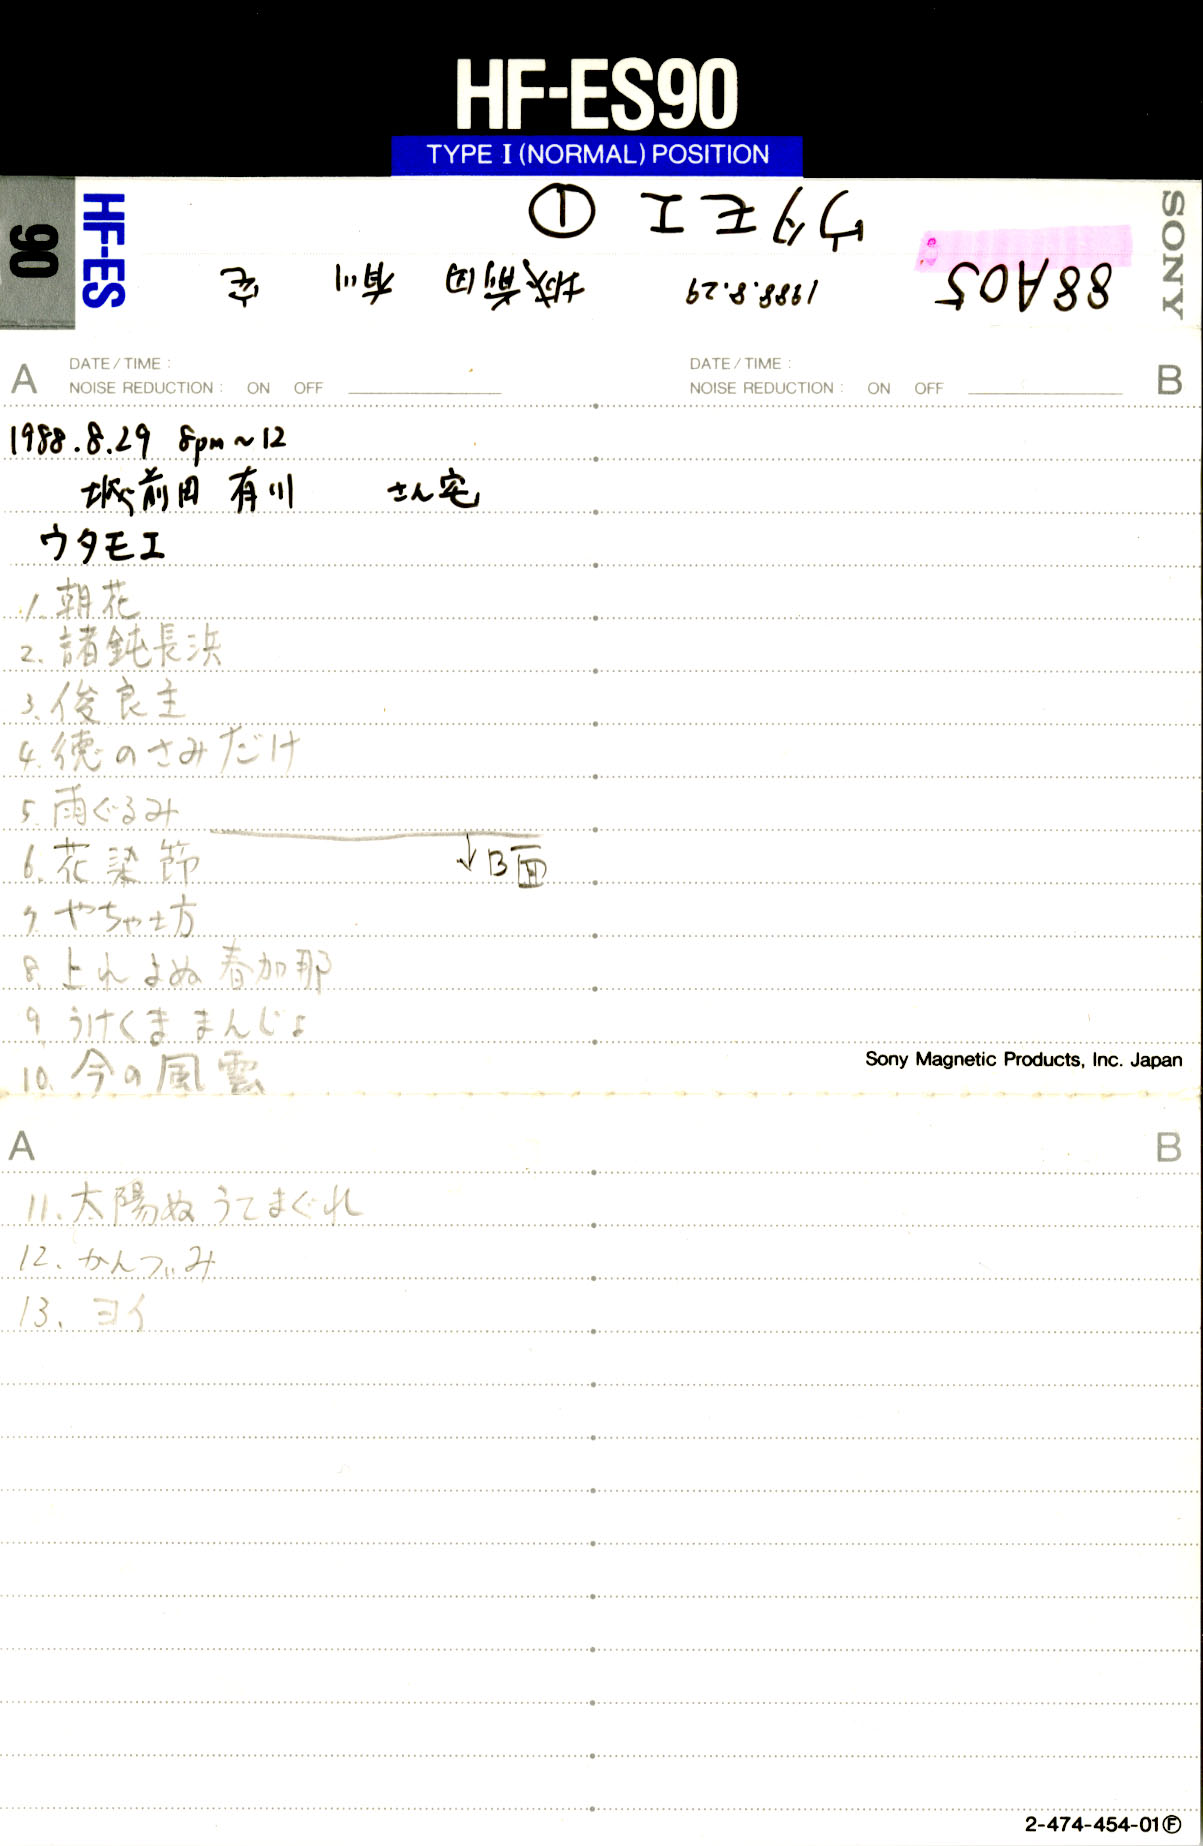 HF-ES90
TYPE I (NORMAL) POSITION
90
HF-ES
SONY
ウタモエ ①
88A05 1988.8.29 城前田 有川 宅
A DATE/TIME :
NOISE REDUCTION : ON OFF
DATE/TIME :
NOISE REDUCTION : ON OFF B
1988.8.29 8pm~12
城前田 有川 さん宅
ウタモエ
1. 朝花
2. 諸鈍長浜
3. 俊良主
4. 徳のさみだけ
5. 雨ぐるみ
↓B面
6. 花染節
7. やちゃ坊
8. 上れよぬ春加那
9. うけくままんじょ
10. 今の風雲
Sony Magnetic Products, Inc. Japan
A B
11. 太陽ぬうてまぐれ
12. かんづみ
13. ヨイ
2-474-454-01Ⓕ